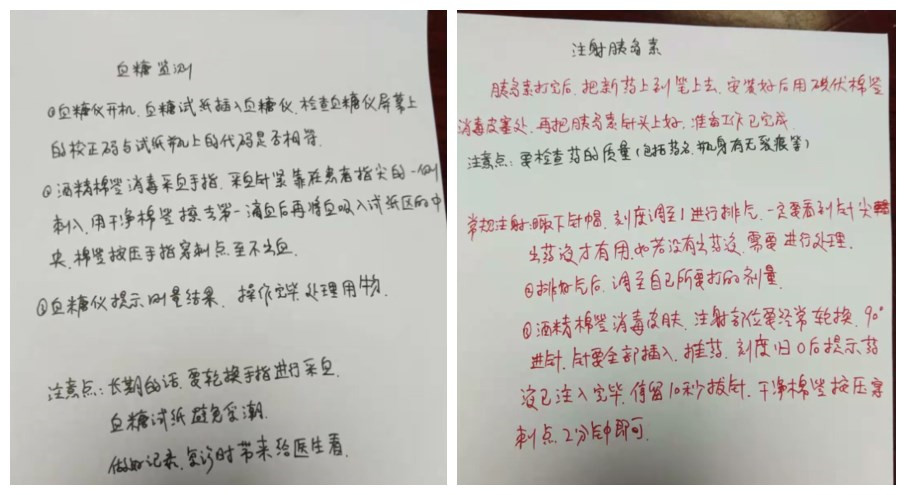 血糖监测
①血糖仪开机,血糖试纸插入血糖仪,检查血糖仪屏幕上
的校正码与试纸瓶上的代码是否相符.
②酒精棉签消毒采血手指,采血针紧靠在患者指尖的一侧
刺入,用干净棉签擦去第一滴血后再将血吸入试纸区的中
央,棉签按压手指穿刺点至不出血.
③血糖仪提示测量结果,操作完毕处理用物.
注意点:长期的话,要轮换手指进行采血.
血糖试纸避免受潮.
做好记录,复诊时带来给医生看.
注射胰岛素
胰岛素打完后,把新药上到笔上去,安装好后用碘伏棉签
消毒皮塞处,再把胰岛素针头上好,准备工作已完成.
注意点:要检查药的质量(包括药名,瓶身有无裂痕等)
常规注射:①取下针帽,刻度调至1进行排气,一定要看到针尖
出药液才有用,如若没有出药液,需要进行处理.
②排好气后,调至自己所要打的剂量.
③酒精棉签消毒皮肤,注射部位要经常轮换,90°
进针,针要全部插入,推药,刻度归0后提示药
液已注入完毕,停留10秒拔针,干净棉签按压穿
刺点,2分钟即可.